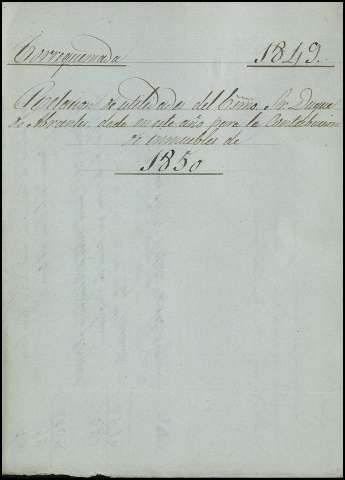 Torrequemada 1849.
Relacion de utilidades del Exmo. Sr. Duque
de Abrantes, dada en este año para la Contribucion
de inmuebles de
1850